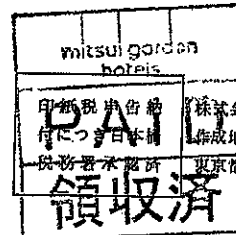 mitsui garden
hotels
印紙税申告納
付につき日本橋
税務署承認済
株式会
作成
東京
PAID
領収済